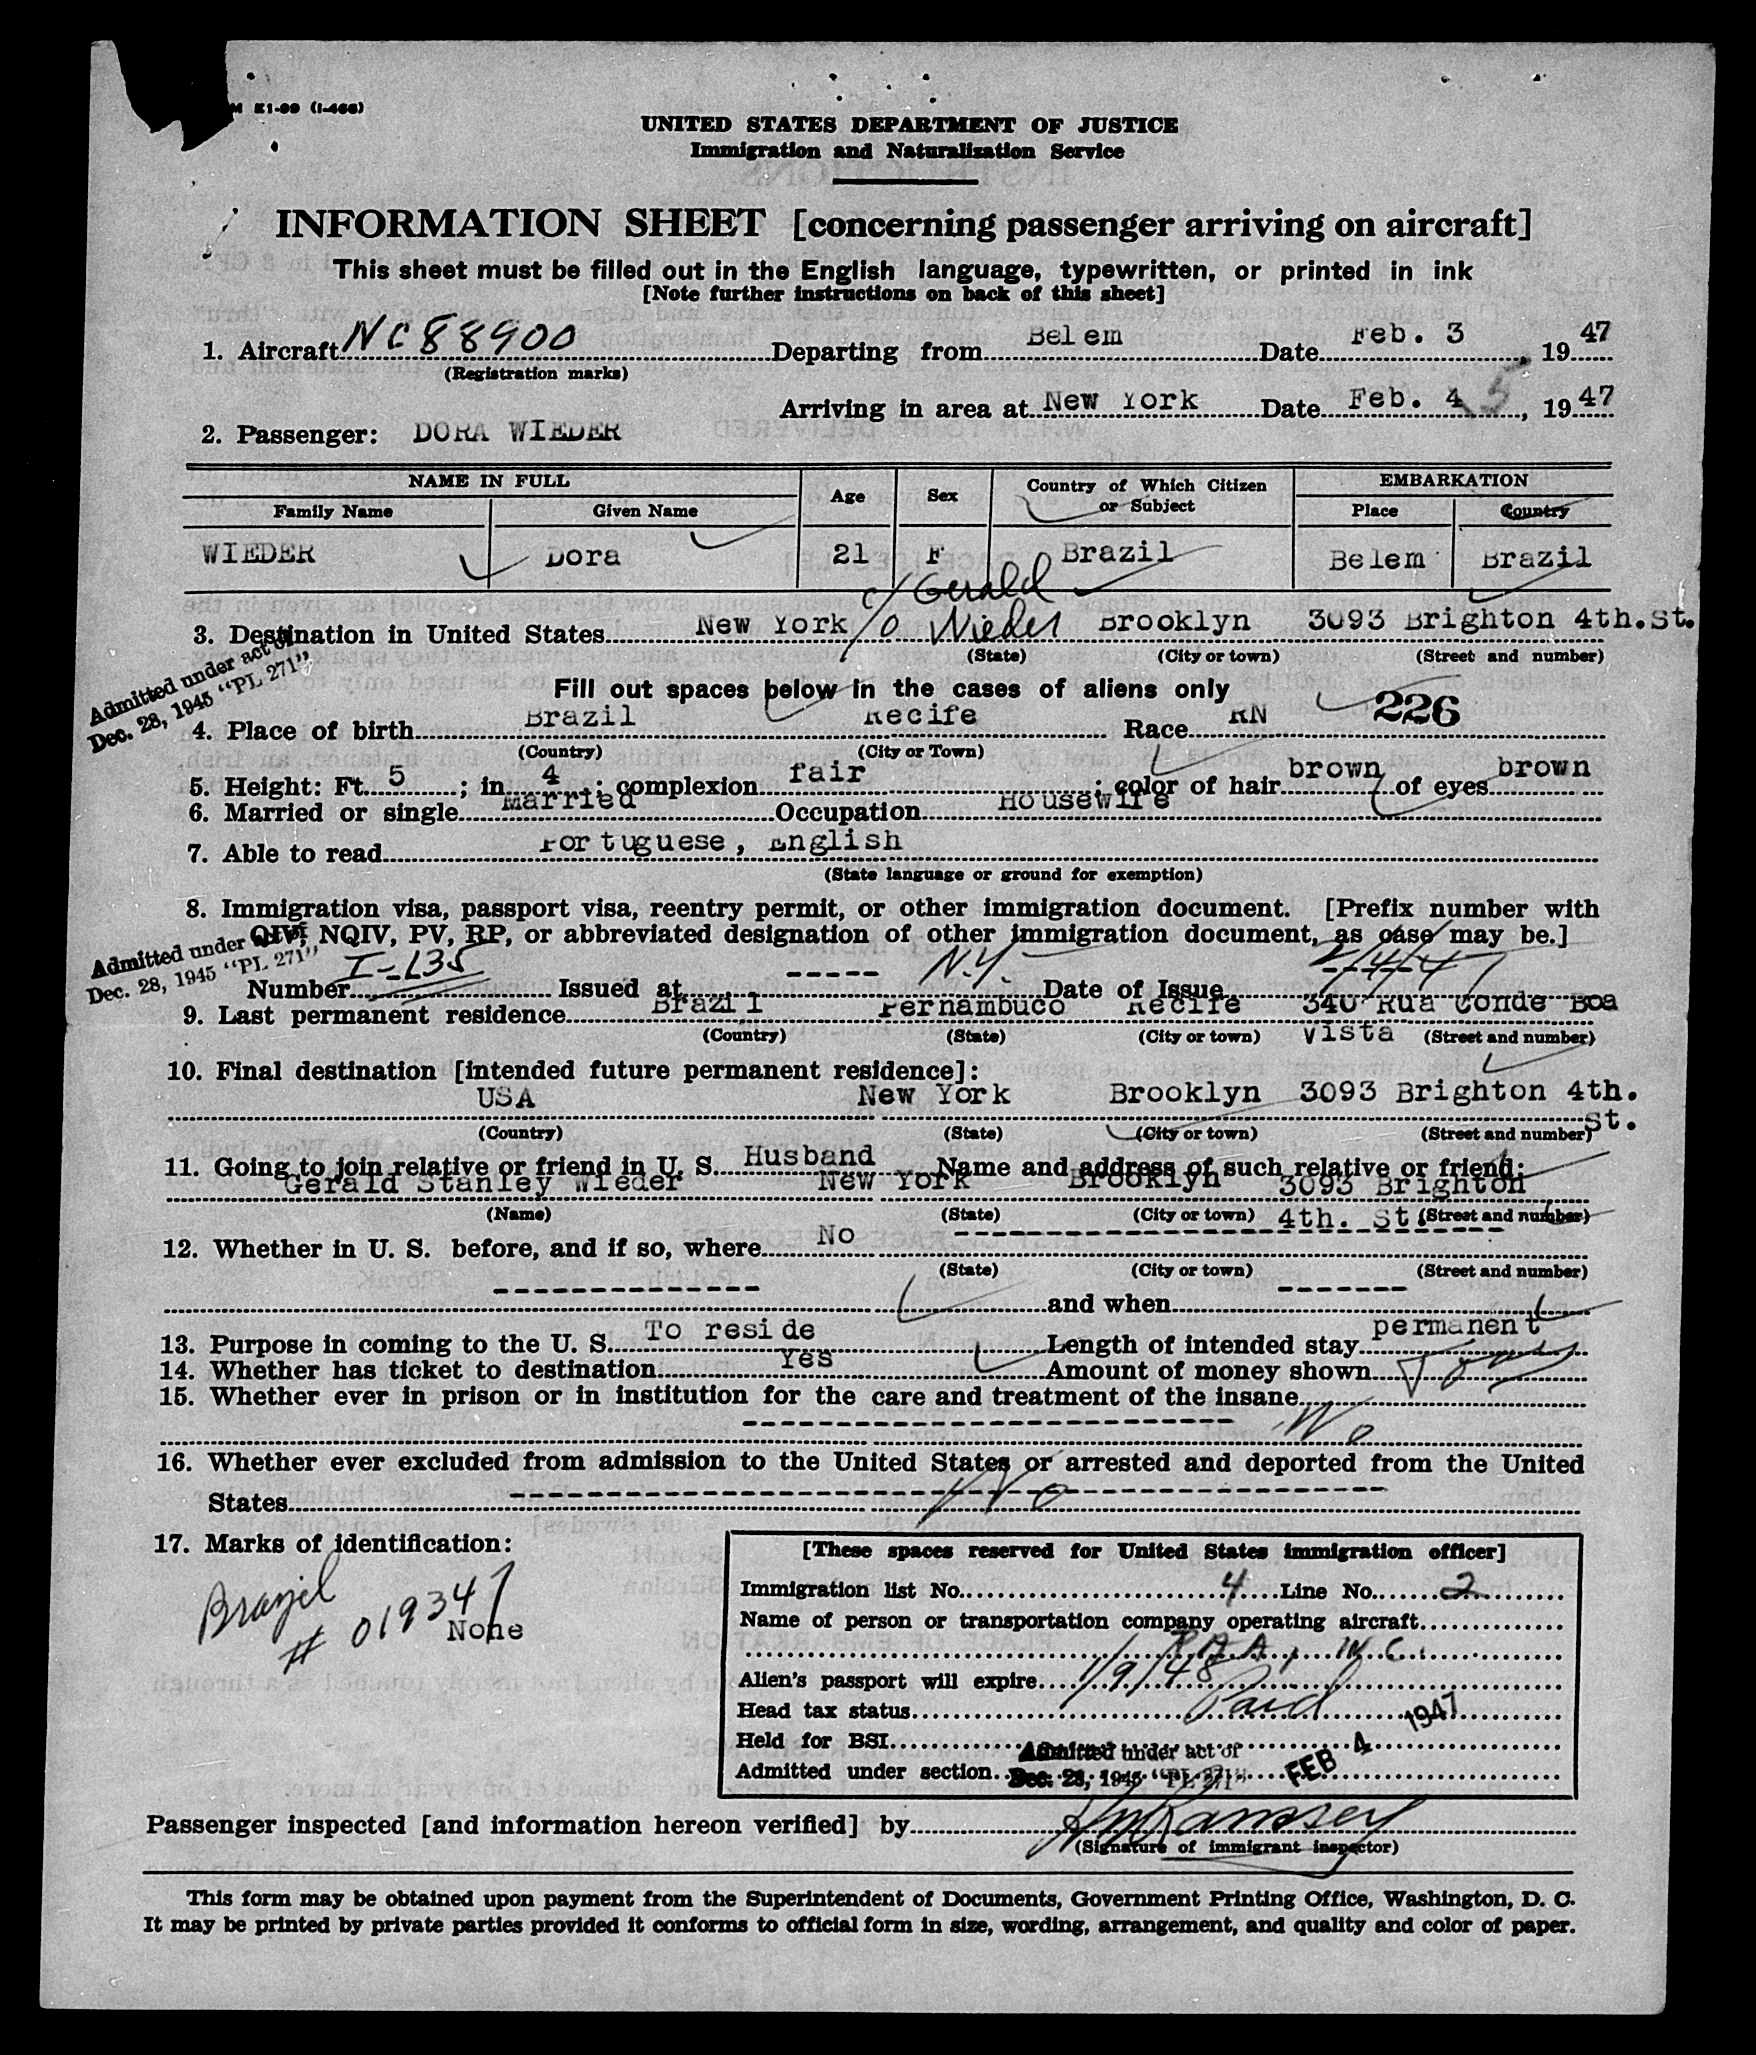 M K1-99 (I-466)
UNITED STATES DEPARTMENT OF JUSTICE
Immigration and Naturalization Service
INFORMATION SHEET [concerning passenger arriving on aircraft]
This sheet must be filled out in the English language, typewritten, or printed in ink
[Note further instructions on back of this sheet]
1. Aircraft NC88900 Departing from Belem Date Feb. 3, 1947
(Registration marks)
Arriving in area at New York Date Feb. 4 5, 1947
2. Passenger: DORA WIEDER
NAME IN FULL Age Sex Country of Which Citizen or Subject EMBARKATION
Family Name Given Name Place Country
WIEDER Dora 21 F Brazil Belem Brazil
c/o Gerald Wieder
3. Destination in United States New York Brooklyn 3093 Brighton 4th.St.
(State) (City or town) (Street and number)
Admitted under act of
Dec. 28, 1945 "PL 271"
Fill out spaces below in the cases of aliens only
226
4. Place of birth Brazil Recife Race RN
(Country) (City or Town)
5. Height: Ft. 5; in. 4; complexion fair; color of hair brown of eyes brown
6. Married or single Married Occupation Housewife
7. Able to read Portuguese, English
(State language or ground for exemption)
8. Immigration visa, passport visa, reentry permit, or other immigration document. [Prefix number with
QIV, NQIV, PV, RP, or abbreviated designation of other immigration document, as case may be.]
Admitted under act of
Dec. 28, 1945 "PL 271"
Number I-135 Issued at ----- N.Y. Date of Issue 2/4/47
9. Last permanent residence Brazil Pernambuco Recife 340 Rua Conde Boa
(Country) (State) (City or town) Vista (Street and number)
10. Final destination [intended future permanent residence]:
USA New York Brooklyn 3093 Brighton 4th.
St.
(Country) (State) (City or town) (Street and number)
11. Going to join relative or friend in U. S. Husband Name and address of such relative or friend:
Gerald Stanley Wieder New York Brooklyn 3093 Brighton
(Name) (State) (City or town) 4th. St. (Street and number)
12. Whether in U. S. before, and if so, where No
(State) (City or town) (Street and number)
and when
13. Purpose in coming to the U. S. To reside Length of intended stay permanent
14. Whether has ticket to destination Yes Amount of money shown
15. Whether ever in prison or in institution for the care and treatment of the insane
No
16. Whether ever excluded from admission to the United States or arrested and deported from the United
States No
17. Marks of identification:
Brazil
# 019347
None
[These spaces reserved for United States immigration officer]
Immigration list No. 4 Line No. 2
Name of person or transportation company operating aircraft
P.A.A., INC.
Alien's passport will expire 1/9/48
Head tax status Paid
Held for BSI
Admitted under section Admitted under act of Dec. 28, 1945 "PL 271" FEB 4 1947
Passenger inspected [and information hereon verified] by Ramsey
(Signature of immigrant inspector)
This form may be obtained upon payment from the Superintendent of Documents, Government Printing Office, Washington, D. C.
It may be printed by private parties provided it conforms to official form in size, wording, arrangement, and quality and color of paper.